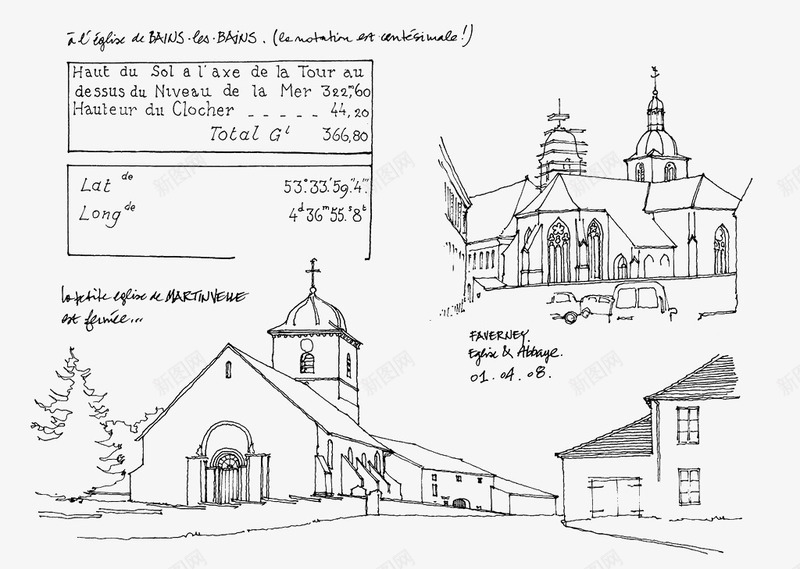 à l'église de BAINS-les-BAINS. (la notation est centésimale!)
Haut du Sol a l'axe de la Tour au
dessus du Niveau de la Mer 322,ᵐ60
Hauteur du Clocher _ _ _ _ _ 44,20
Total Gˡ 366,80
Latᵈᵉ 53°.33'.59".4'''.
Longᵈᵉ 4ᵈ36ᵐ55.ˢ8ᵗ
la petite eglise de MARTINVELLE
est fermée...
FAVERNEY.
Eglise & Abbaye.
01.04.08.